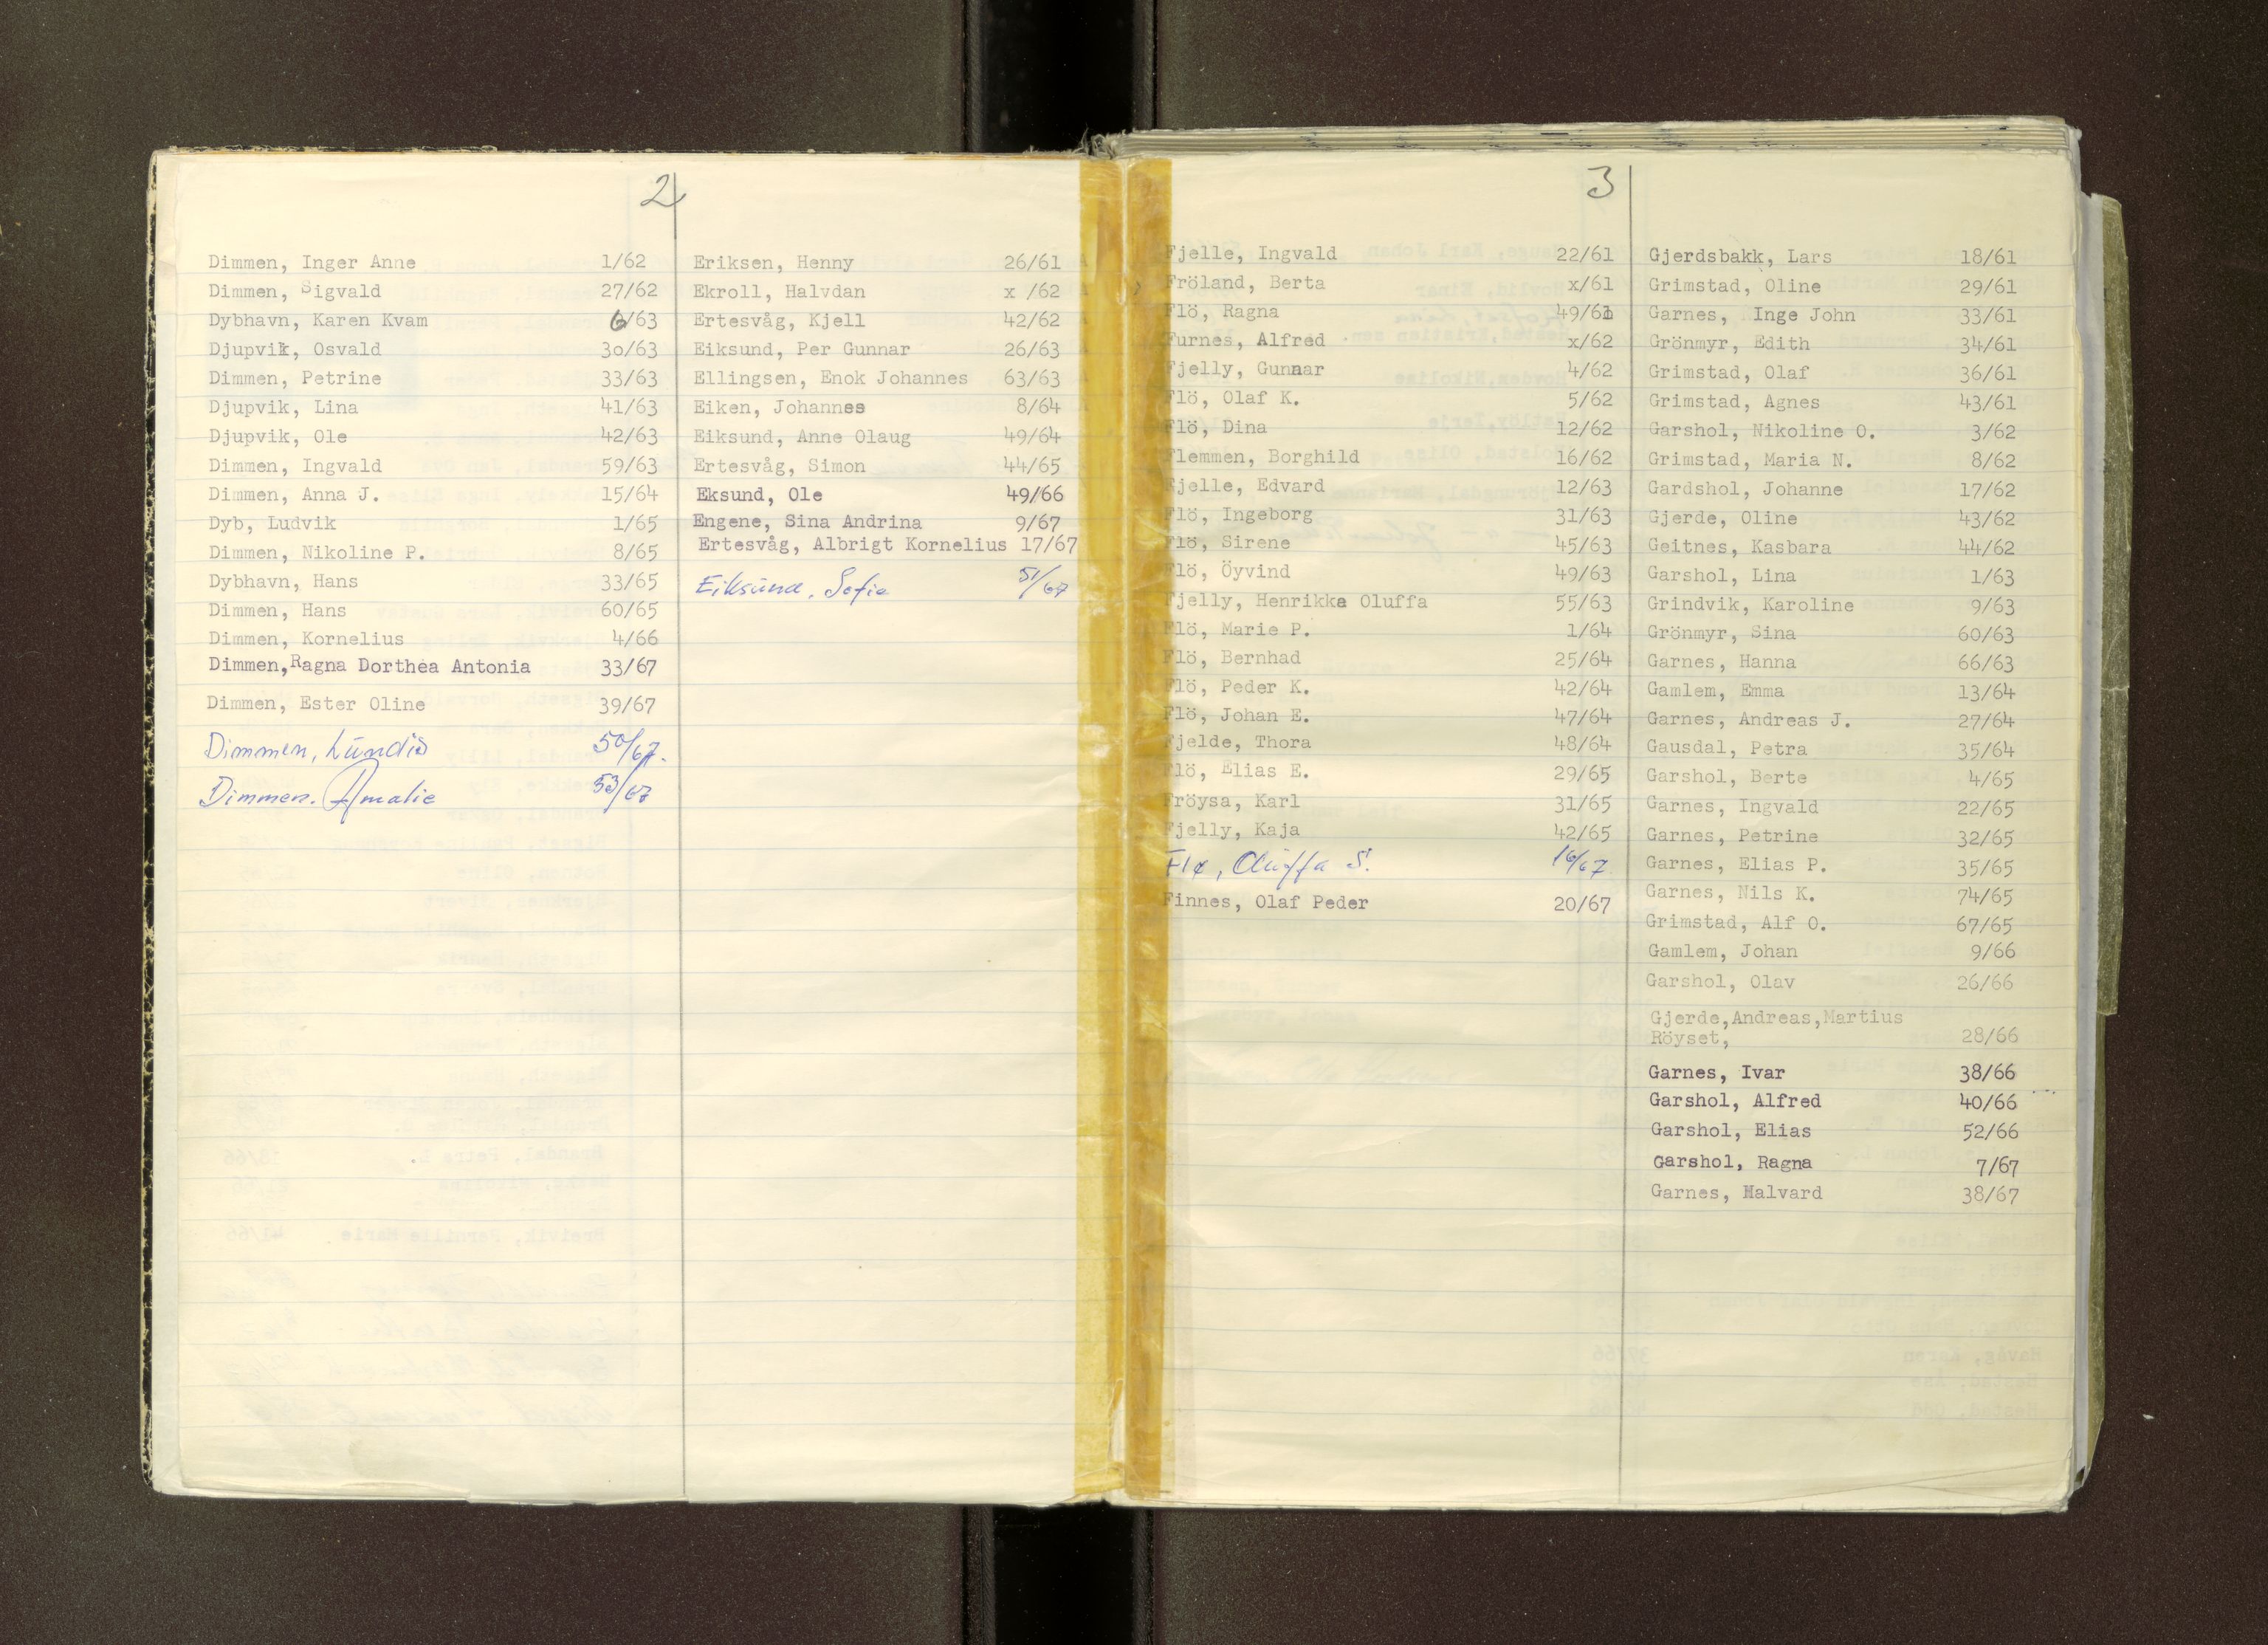 2
Dimmen, Inger Anne 1/62
Dimmen, Sigvald 27/62
Dybhavn, Karen Kvam 6/63
Djupvik, Osvald 30/63
Dimmen, Petrine 33/63
Djupvik, Lina 41/63
Djupvik, Ole 42/63
Dimmen, Ingvald 59/63
Dimmen, Anna J. 15/64
Dyb, Ludvik 1/65
Dimmen, Nikoline P. 8/65
Dybhavn, Hans 33/65
Dimmen, Hans 60/65
Dimmen, Kornelius 4/66
Dimmen,Ragna Dorthea Antonia 33/67
Dimmen, Ester Oline 39/67
Dimmen, 50/67.
Dimmen. Amalie 53/67
Eriksen, Henny 26/61
Ekroll, Halvdan x /62
Ertesvåg, Kjell 42/62
Eiksund, Per Gunnar 26/63
Ellingsen, Enok Johannes 63/63
Eiken, Johannes 8/64
Eiksund, Anne Olaug 49/64
Ertesvåg, Simon 44/65
Eksund, Ole 49/66
Engene, Sina Andrina 9/67
Ertesvåg, Albrigt Kornelius 17/67
Eiksund, Sofie 51/67
3
Fjelle, Ingvald 22/61
Fröland, Berta x/61
Flö, Ragna 49/61
Furnes, Alfred x/62
Fjelly, Gunnar 4/62
Flö, Olaf K. 5/62
Flö, Dina 12/62
Flemmen, Borghild 16/62
Fjelle, Edvard 12/63
Flö, Ingeborg 31/63
Flö, Sirene 45/63
Flö, Öyvind 49/63
Fjelly, Henrikke Oluffa 55/63
Flö, Marie P. 1/64
Flö, Bernhad 25/64
Flö, Peder K. 42/64
Flö, Johan E. 47/64
Fjelde, Thora 48/64
Flö, Elias E. 29/65
Fröysa, Karl 31/65
Fjelly, Kaja 42/65
Flø, Oluffa S. 16/67
Finnes, Olaf Peder 20/67
Gjerdsbakk, Lars 18/61
Grimstad, Oline 29/61
Garnes, Inge John 33/61
Grönmyr, Edith 34/61
Grimstad, Olaf 36/61
Grimstad, Agnes 43/61
Garshol, Nikoline O. 3/62
Grimstad, Maria N. 8/62
Gardshol, Johanne 17/62
Gjerde, Oline 43/62
Geitnes, Kasbara 44/62
Garshol, Lina 1/63
Grindvik, Karoline 9/63
Grönmyr, Sina 60/63
Garnes, Hanna 66/63
Gamlem, Emma 13/64
Garnes, Andreas J. 27/64
Gausdal, Petra 35/64
Garshol, Berte 4/65
Garnes, Ingvald 22/65
Garnes, Petrine 32/65
Garnes, Elias P. 35/65
Garnes, Nils K. 74/65
Grimstad, Alf O. 67/65
Gamlem, Johan 9/66
Garshol, Olav 26/66
Gjerde,Andreas,Martius
Röyset, 28/66
Garnes, Ivar 38/66
Garshol, Alfred 40/66
Garshol, Elias 52/66
Garshol, Ragna 7/67
Garnes, Halvard 38/67